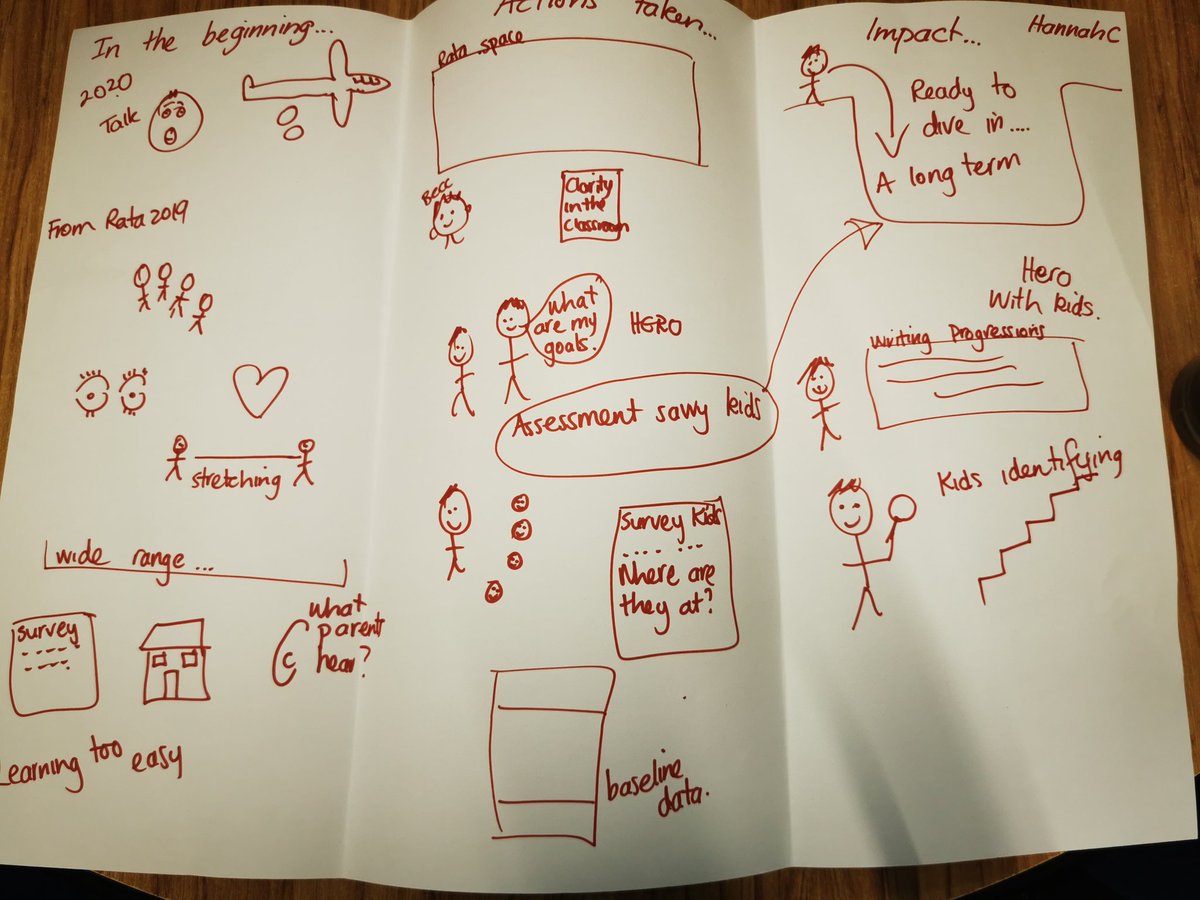 In the beginning...
2020
Talk
From Rata 2019
stretching
wide range ...
survey
what
parents
hear?
Learning too easy
Actions taken...
Rata space
Becc
Clarity
in the
classroom
What
are my
goals.
HERO
Assessment savvy kids
Survey Kids
Where are
they at?
baseline
data.
Impact... Hannah C
Ready to
dive in....
A long term
Hero
With kids.
Writing Progressions
Kids identifying